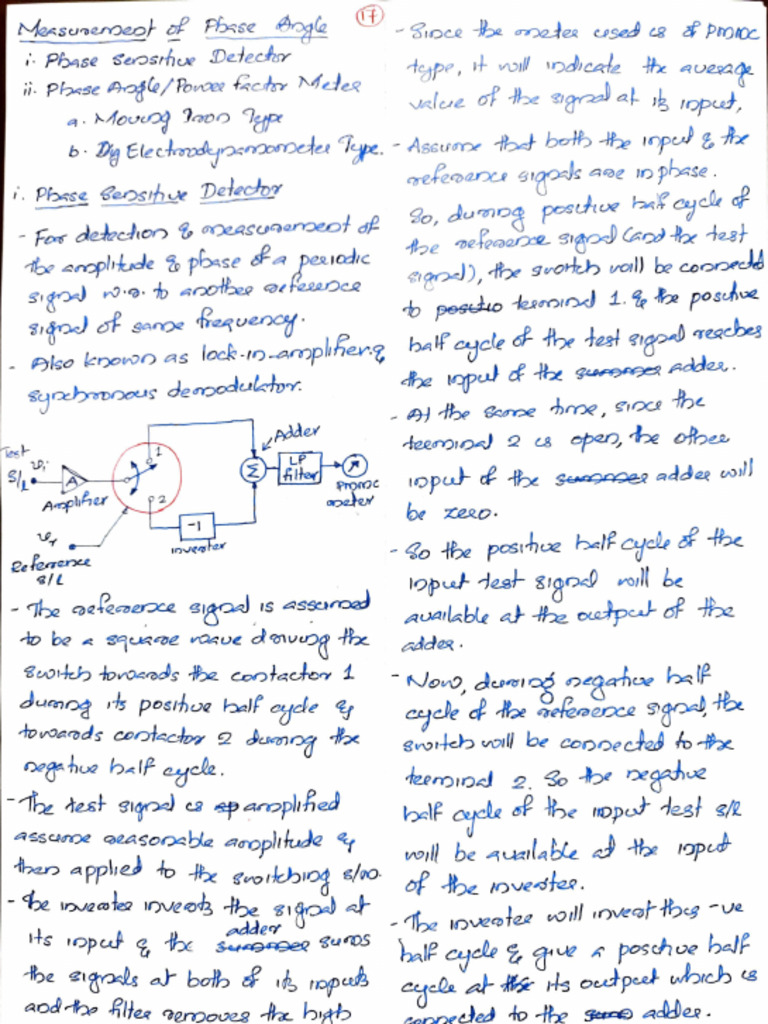 Measurement of Phase Angle
i. Phase Sensitive Detector
ii. Phase Angle/Power factor Meter
a. Moving Iron Type
b. Dig Electrodynamometer Type.
i. Phase Sensitive Detector
- For detection & measurement of
the amplitude & phase of a periodic
signal w.r. to another reference
signal of same frequency.
- Also known as lock-in-amplifier &
synchronous demodulator.
Test
S/l
vi
A
Amplifier
1
2
Adder
Σ
LP
filter
PMMC
meter
-1
inverter
vr
Reference
S/L
- The reference signal is assumed
to be a square wave driving the
switch towards the contactor 1
during its positive half cycle &
towards contactor 2 during the
negative half cycle.
- The test signal is sp amplified
assume reasonable amplitude &
then applied to the switching s/m.
- The inverter inverts the signal at
adder
its input & the summer sums
the signals at both of its inputs
and the filter removes the high
17
- Since the meter used is of PMMC
type, it will indicate the average
value of the signal at its input,
- Assume that both the input & the
reference signals are in phase.
So, during positive half cycle of
the reference signal (and the test
signal), the switch will be connected
to positio terminal 1. & the positive
half cycle of the test signal reaches
the input of the summer adder.
- At the same time, since the
terminal 2 is open, the other
input of the summer adder will
be zero.
- So the positive half cycle of the
input test signal will be
available at the output of the
adder.
- Now, during negative half
cycle of the reference signal, the
switch will be connected to the
terminal 2. So the negative
half cycle of the input test s/l
will be available at the input
of the inverter.
- The inverter will invert this -ve
half cycle & give a positive half
cycle at its output which is
connected to the adder.